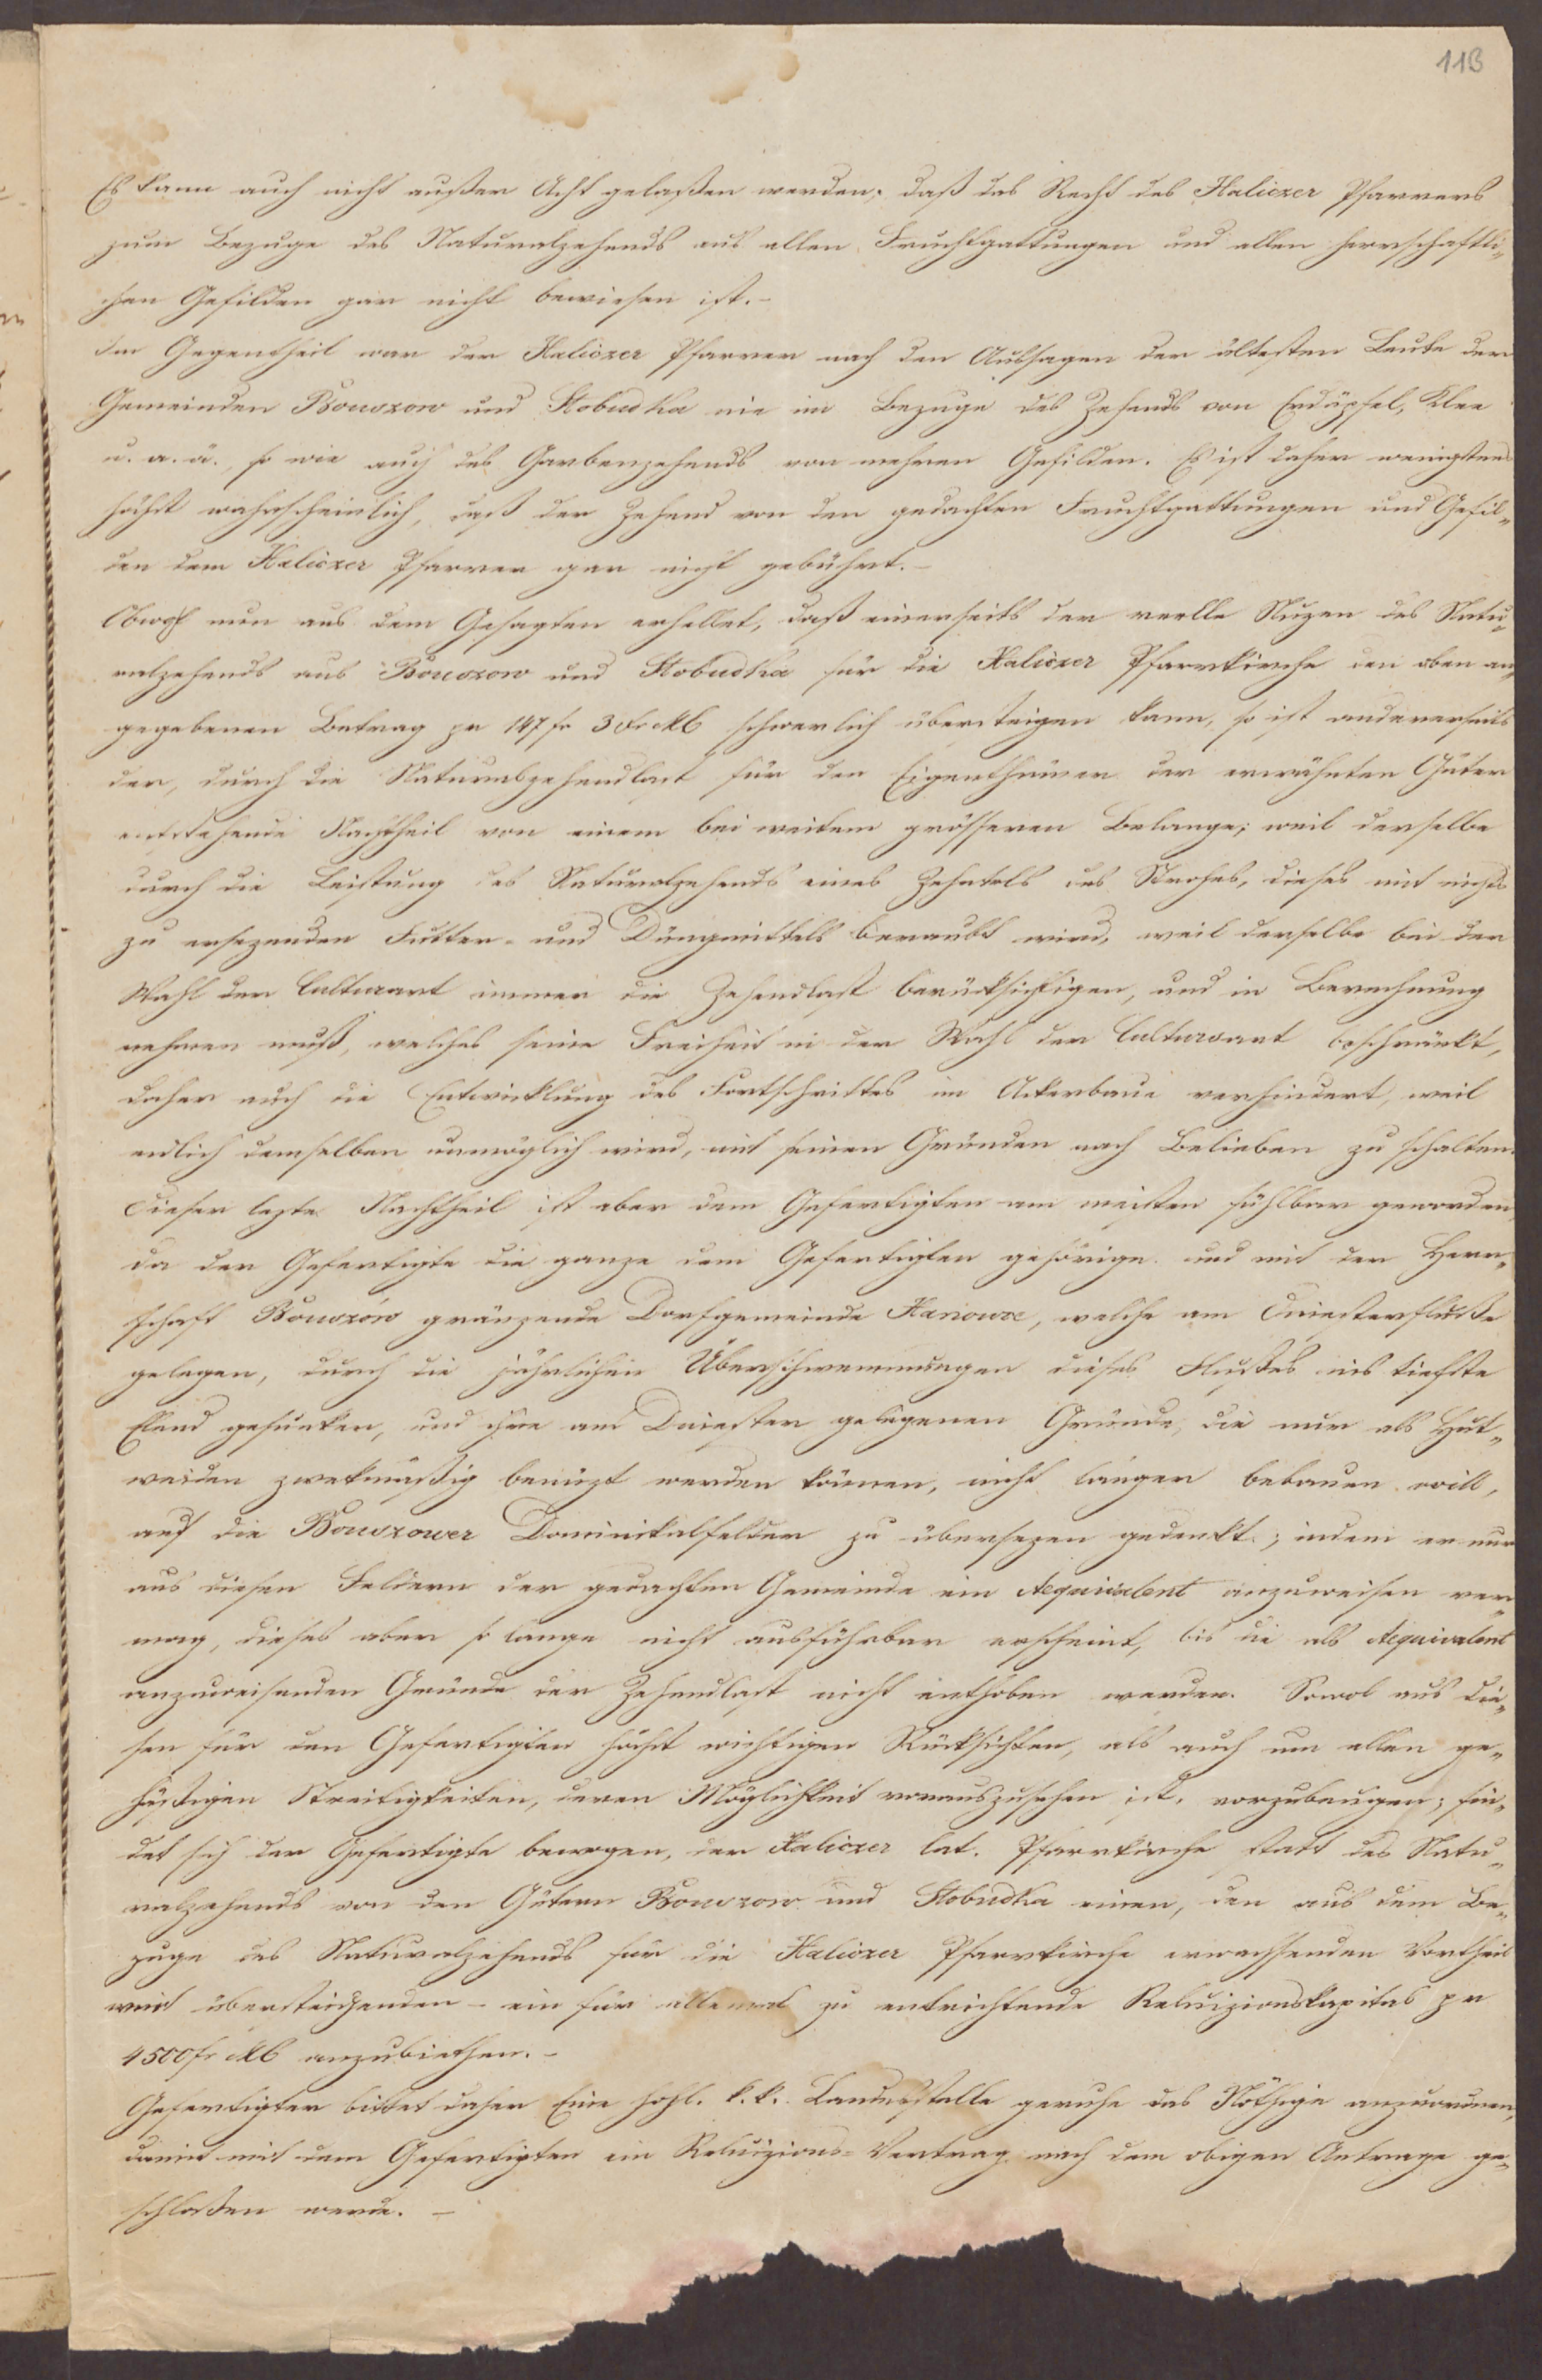 113
Es kann auch nicht außer Acht gelaßen werden, daß das Recht des Haliczer Pfarrers
zum Bezuge des Naturalzehends aus allen Fruchtgattungen und allen herrschaftli„
chen Gefilden gar nicht bewiesen ist.–
Im Gegentheil war der Haliczer Pfarrer nach den Aussagen der ältesten Leute der
Gemeinden Bouszow und Slobudka nie im Bezuge des Zehends von Erdäpfel, Klee
u. a. ä., so wie auch des Garbenzehends von mehren Gefilden. Es ist daher wenigstens
höchst wahrscheinlich, daß der Zehend von den gedachten Fruchtgattungen und Gefil„
den dem Haliczer Pfarrer gar nicht gebührt.–
Obwohl nun aus dem Gesagten erhellet, daß einerseits der reelle Nuzen des Natu„
ralzehends aus Bouszow und Slobudka für die Haliczer Pfarrkirche den oben an„
gegebenen Betrag pr 147 fr 3 xr CM schwerlich übersteigen kann, so ist andererseits
der, durch die Naturalzehendlast für den Eigenthümer der erwähnten Güter
entstehende Nachtheil von einem bei weitem grösseren Belange; weil derselbe
durch die Leistung des Naturalzehends eines Zehntels des Strohes, dieses mit nichts
zu ersezenden Futter- und Düngmittels beraubt wird, weil derselbe bei der
Wahl der Culturart immer die Zehendlast berücksichtigen, und in Berechnung
nehmen muß, welches seine Freiheit in der Wahl der Cultursart beschränkt,
daher auch die Entwicklung des Fortschrittes im Ackerbaue verhindert, weil
endlich demselben unmöglich wird, mit seinen Gründen nach Belieben zu schalten.
Dieser lezte Nachtheil ist aber dem Gefertigten am meisten fühlbar geworden,
da der Gefertigte die ganze dem Gefertigten gehörige und mit der Herr„
schaft Bouszów gränzende Dorfgemeinde Hanowce, welche am Dniesterfluße
gelegen, durch die jährlichen Überschwemmungen dieses Flußes ins tiefste
Elend gesunken, und ihre am Dniester gelegenen Gründe, die nur als Hut„
weiden zwekmäßig benüzt werden können, nicht länger bebauen will,
auf die Bouszower Dominikalfelder zu übersezen gedenkt; indem er nur
aus diesen Feldern der gedachten Gemeinde ein Aequivalent anzuweisen ver„
mag, dieses aber so lange nicht ausführbar erscheint, bis die als Aequivalent
anzuweisenden Gründe der Zehendlast nicht enthoben werden. Sowol aus die„
sen für den Gefertigten höchst wichtigen Rücksichten, als auch um allen ge„
häßigen Streitigkeiten, deren Möglichkeit vorauszusehen ist, vorzubeugen; fin„
det sich der Gefertigte bewogen, der Haliczer lat. Pfarrkirche statt des Natu„
ralzehends von den Gütern Bouszow und Slobudka einen, den aus dem Be„
zuge des Naturalzehends für die Haliczer Pfarrkirche erwachsenden Vortheil
weit übersteigenden – ein für allemal zu entrichtende Reluizionskapital pr
4500 fr CM anzubiethen.–
Gefertigter bittet daher Eine hohl. k.k. Landesstelle geruhe das Nöthige anzuordnen,
damit mit dem Gefertigten ein Reluizions-Vertrag nach dem obigen Antrage ge„
schloßen werde. –